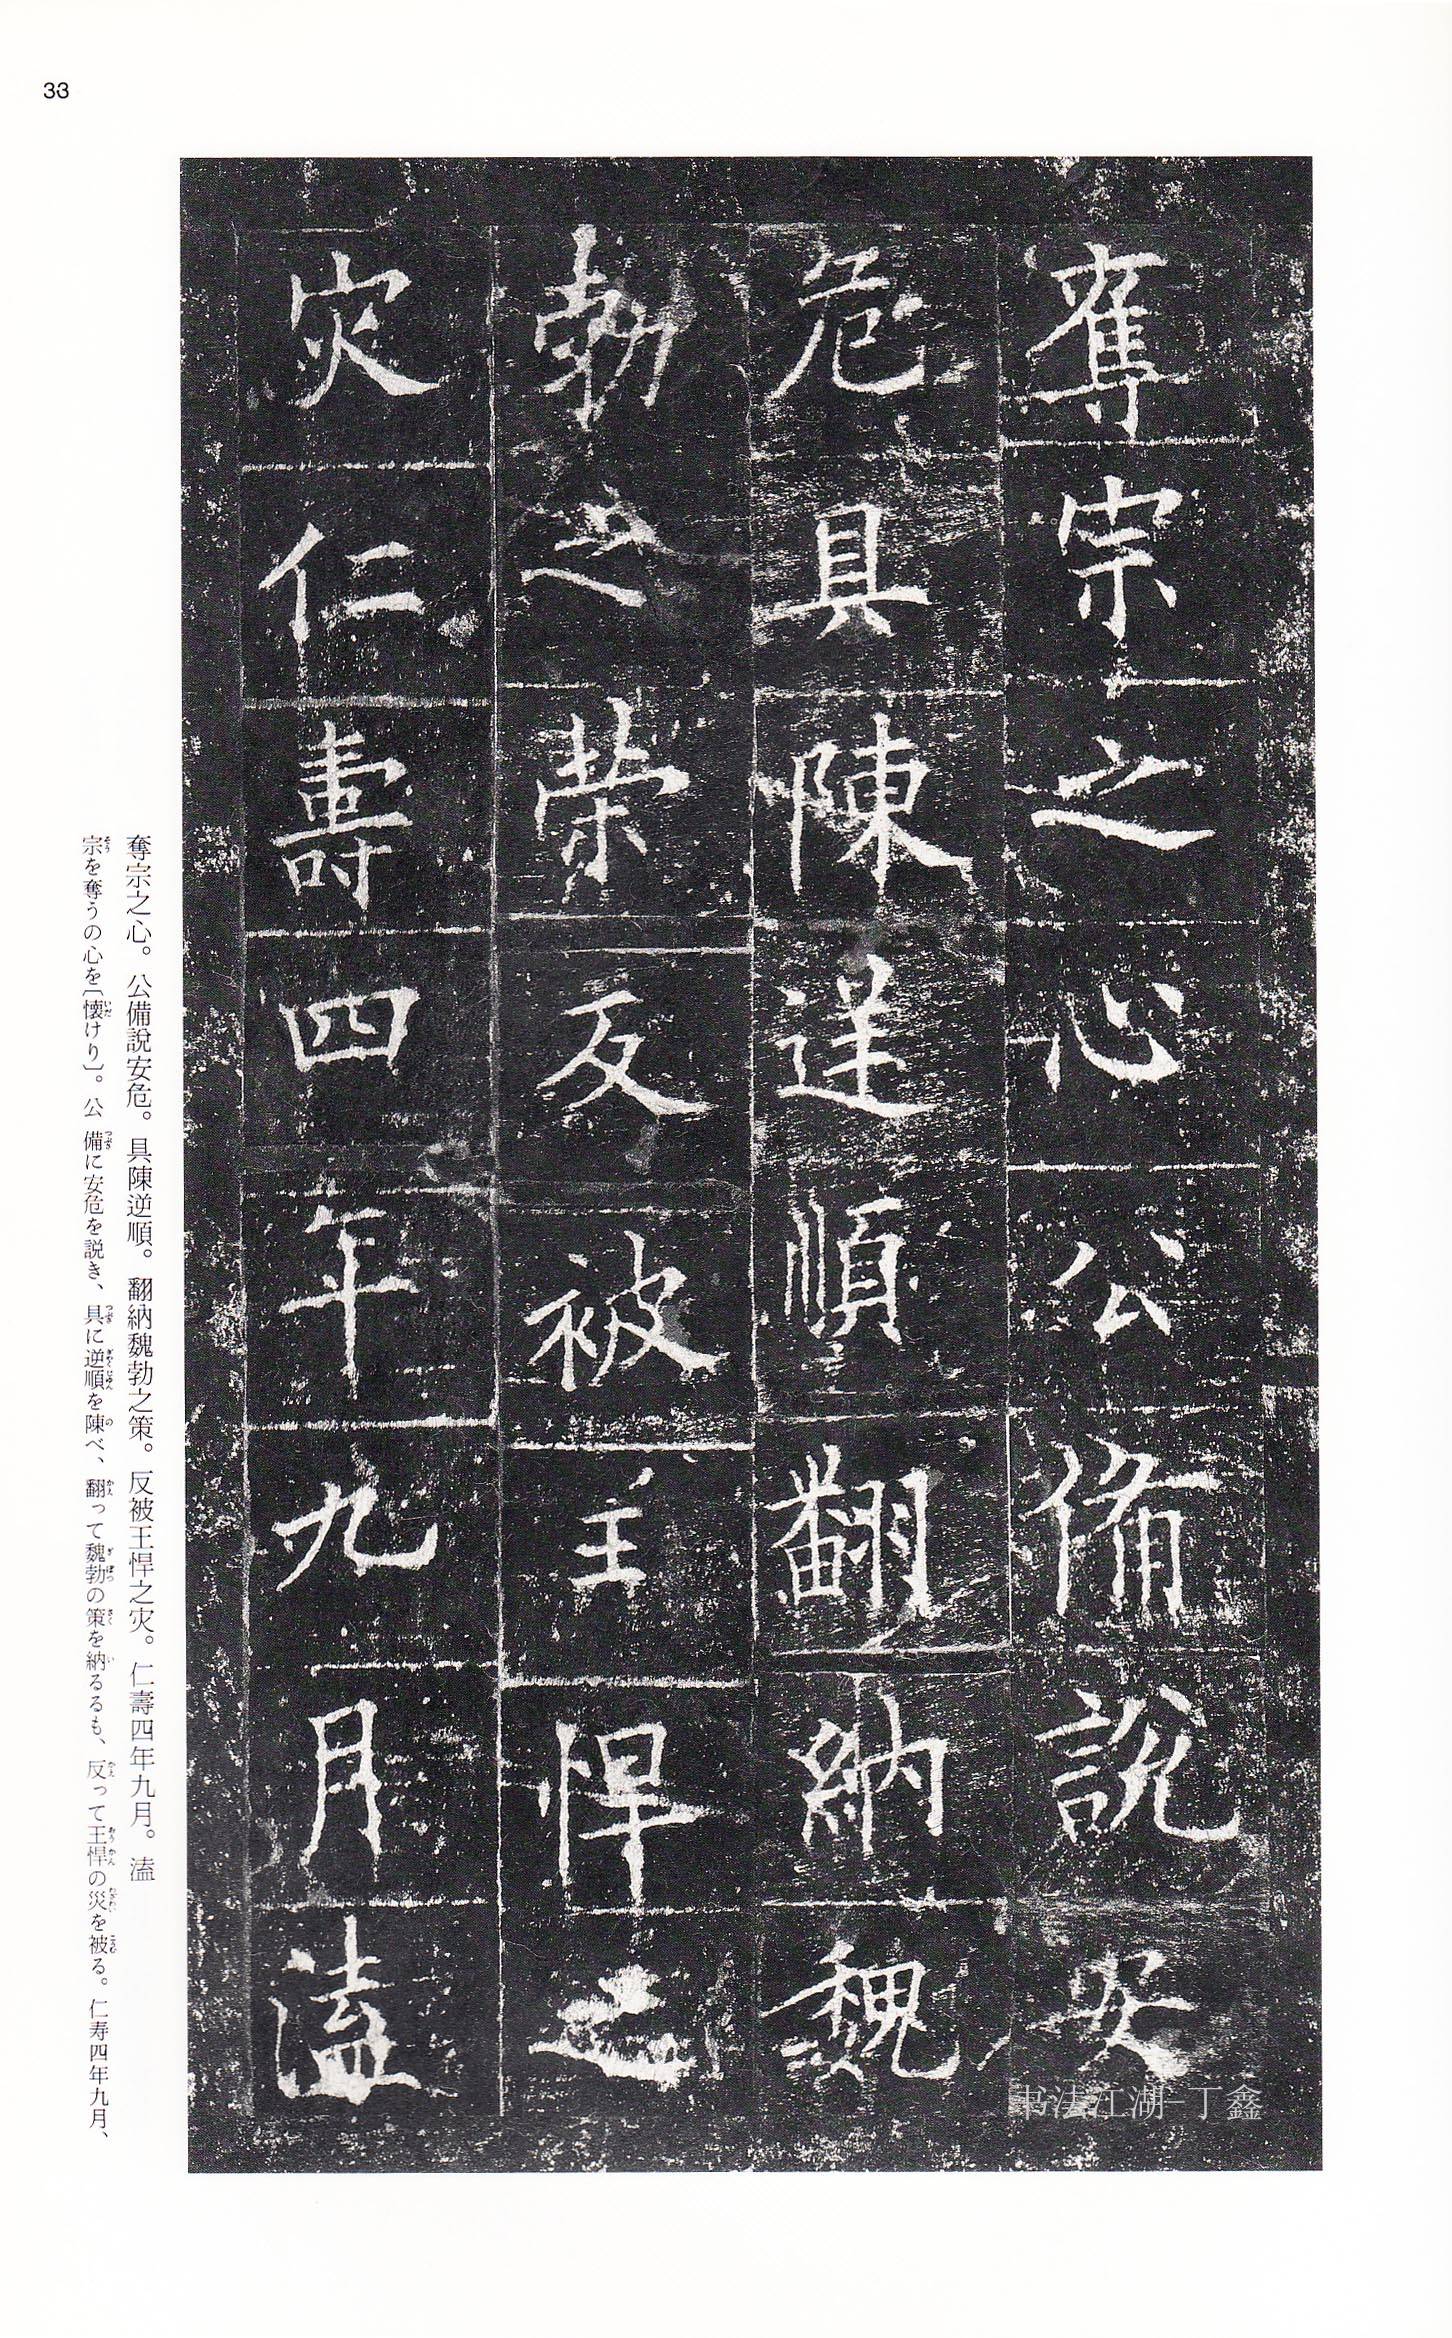 33
奪宗之心公備說安
危具陳逆順翻納魏
勃之榮反被王悍之
灾仁壽四年九月溘
奪宗之心。公備說安危。具陳逆順。翻納魏勃之策。反被王悍之灾。仁壽四年九月。溘
宗を奪うの心を〔懐けり〕。公 備に安危を説き、具に逆順を陳べ、翻って魏勃の策を納るるも、反って王悍の災を被る。仁寿四年九月、
书法江湖-丁鑫